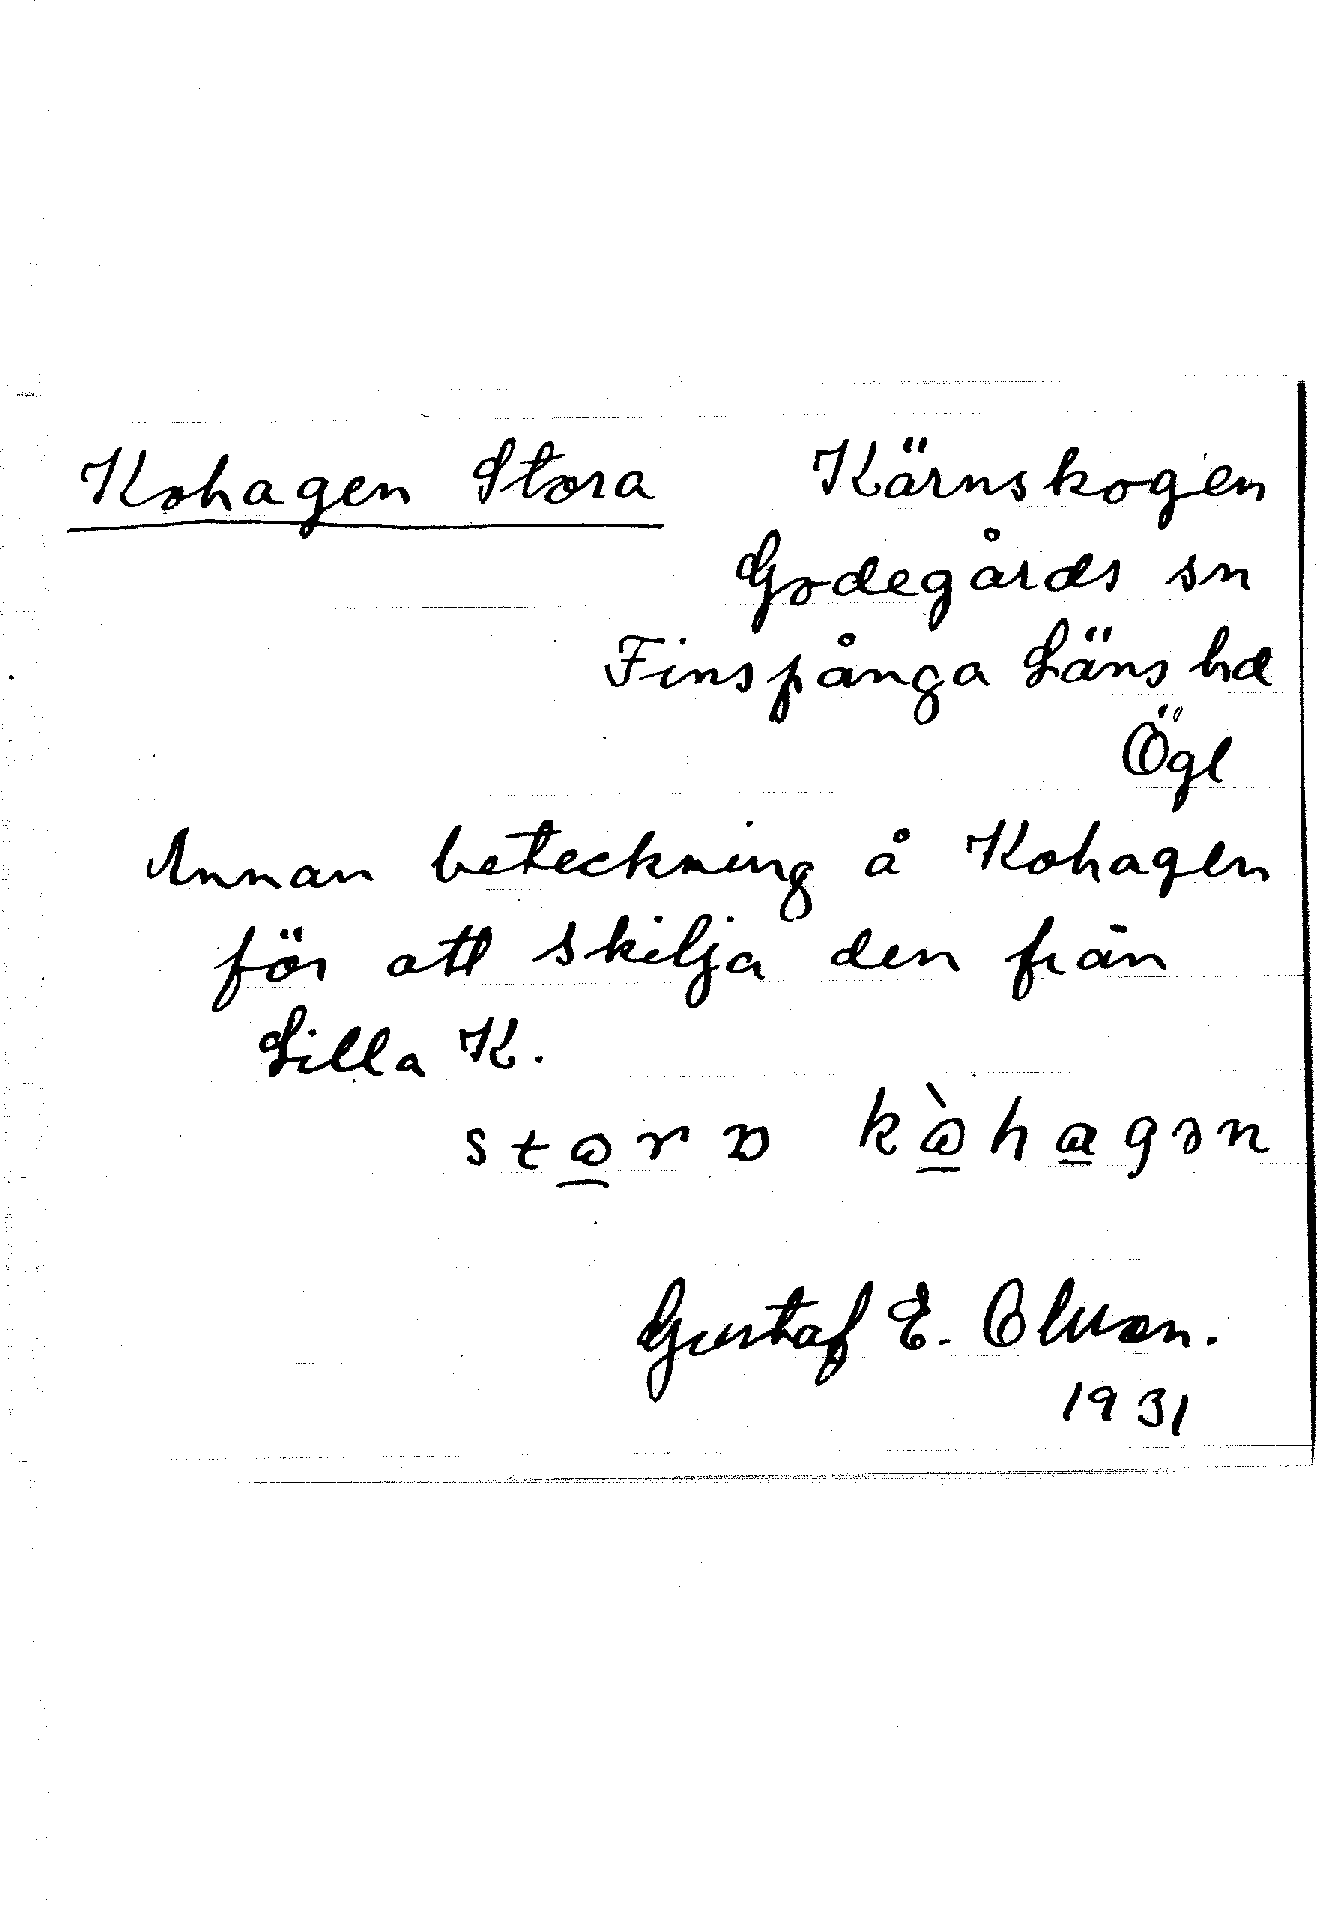 Kohagen Stora Kärnskogen
Godegårds sn
Finspånga Läns hd
Ögl
Annan beteckning å Kohagen
för att skilja den från
Lilla K.
stωrɒ kὼhagən
Gustaf E. Olsson.
1931